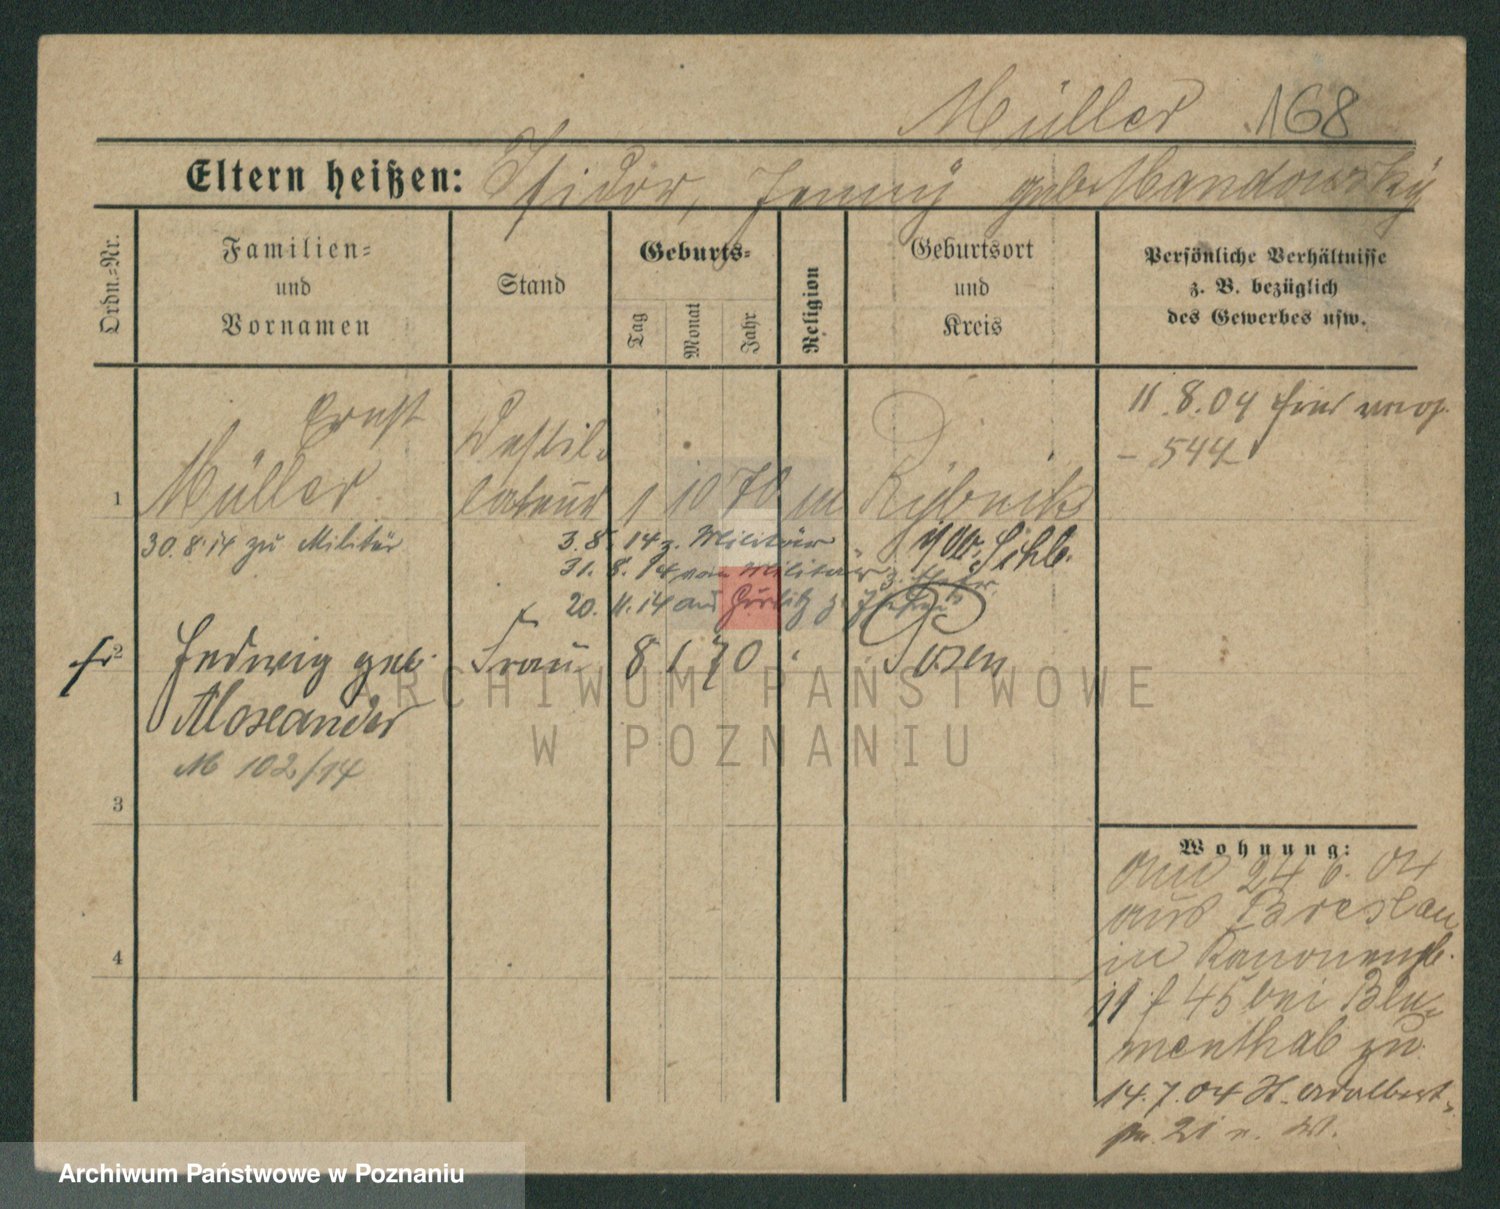 Müller 168
Eltern heißen: Isidor, Jenny geb. Mandowsky
Ordn.=Nr.
Familien=
und
Vornamen
Stand
Geburts=
Tag
Monat
Jahr
Religion
Geburtsort
und
Kreis
Persönliche Verhältnisse
z. B. bezüglich
des Gewerbes usw.
1
Ernst
Müller
Destil-
lateur
1 10 70 m
Rybnik
11.8.04
- 544
30.8.14 zu Militär
3.8.14 z. Militär
31.8.14 vom Militär z.
20.11.14 aus Görlitz z.
2
Hedwig geb.
Alexander
Frau
8 1 70
Posen
M 102/14
3
4
Wohnung:
am 24 6. 04
aus Breslau
in Kanonenpl.
11 f 45 bei Blu-
menthal zu
14.7.04 H. Adalbert-
21 n. W.
ARCHIWUM PAŃSTWOWE
W POZNANIU
Archiwum Państwowe w Poznaniu